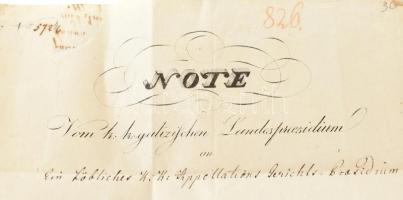 5724
826.
30
NOTE
Vom k. k. galizischen Landespraesidium
an
Ein Löbliches K: K: Appellations Gerichts-Praesidium